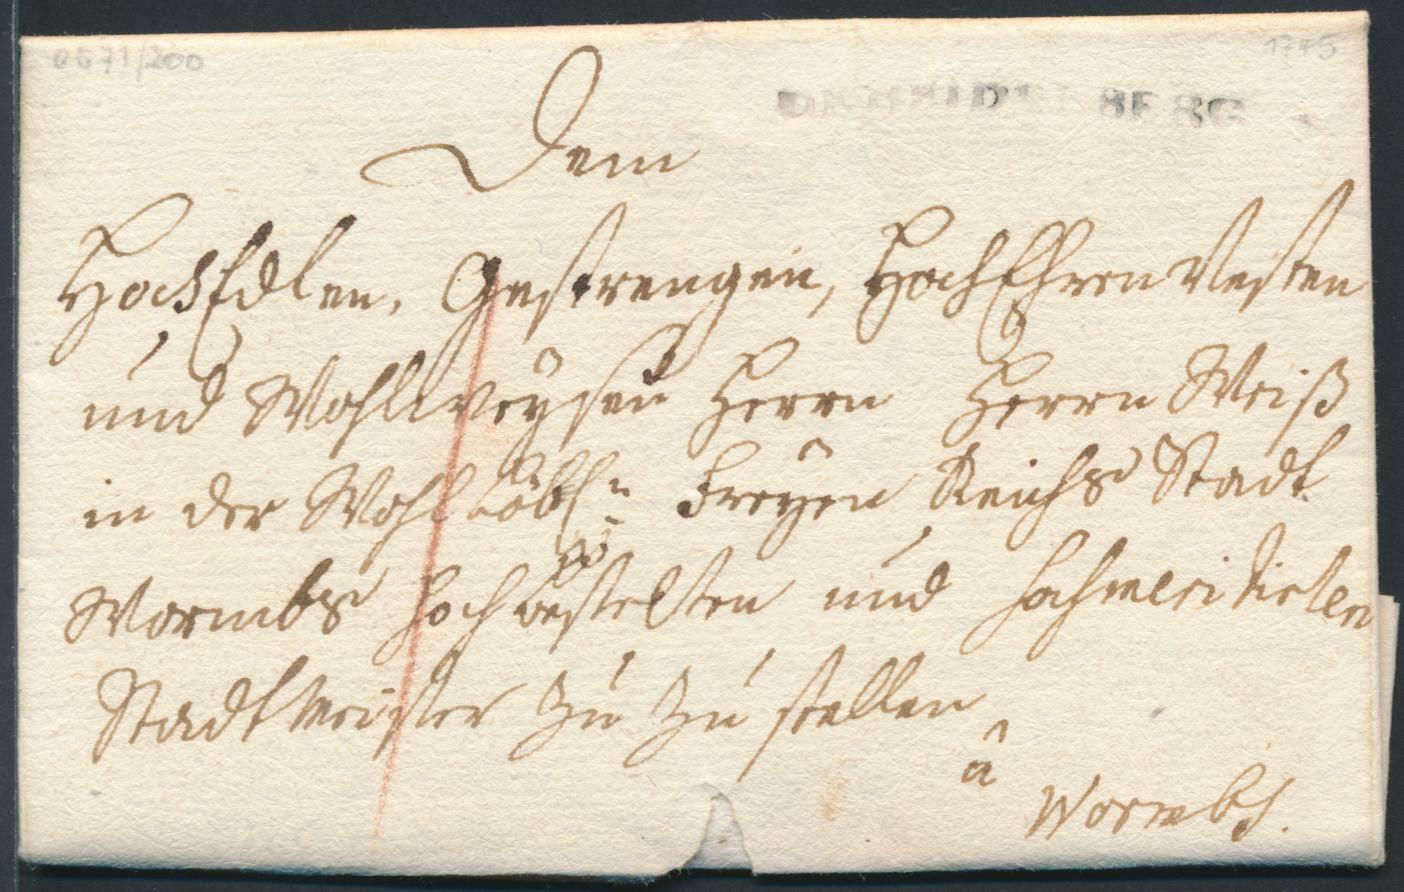 0671/200
1745
Dem
HochEdlen, Gestrengen, HochEhren Vesten
und Wohlweysen Herrn Herrn Weiß
in der Wohllöbln Freyen Reichs Stadt
Wormbs hochbestelten und hochmeritirten
Stadtmeister zu zu stellen
â
Wormbs.